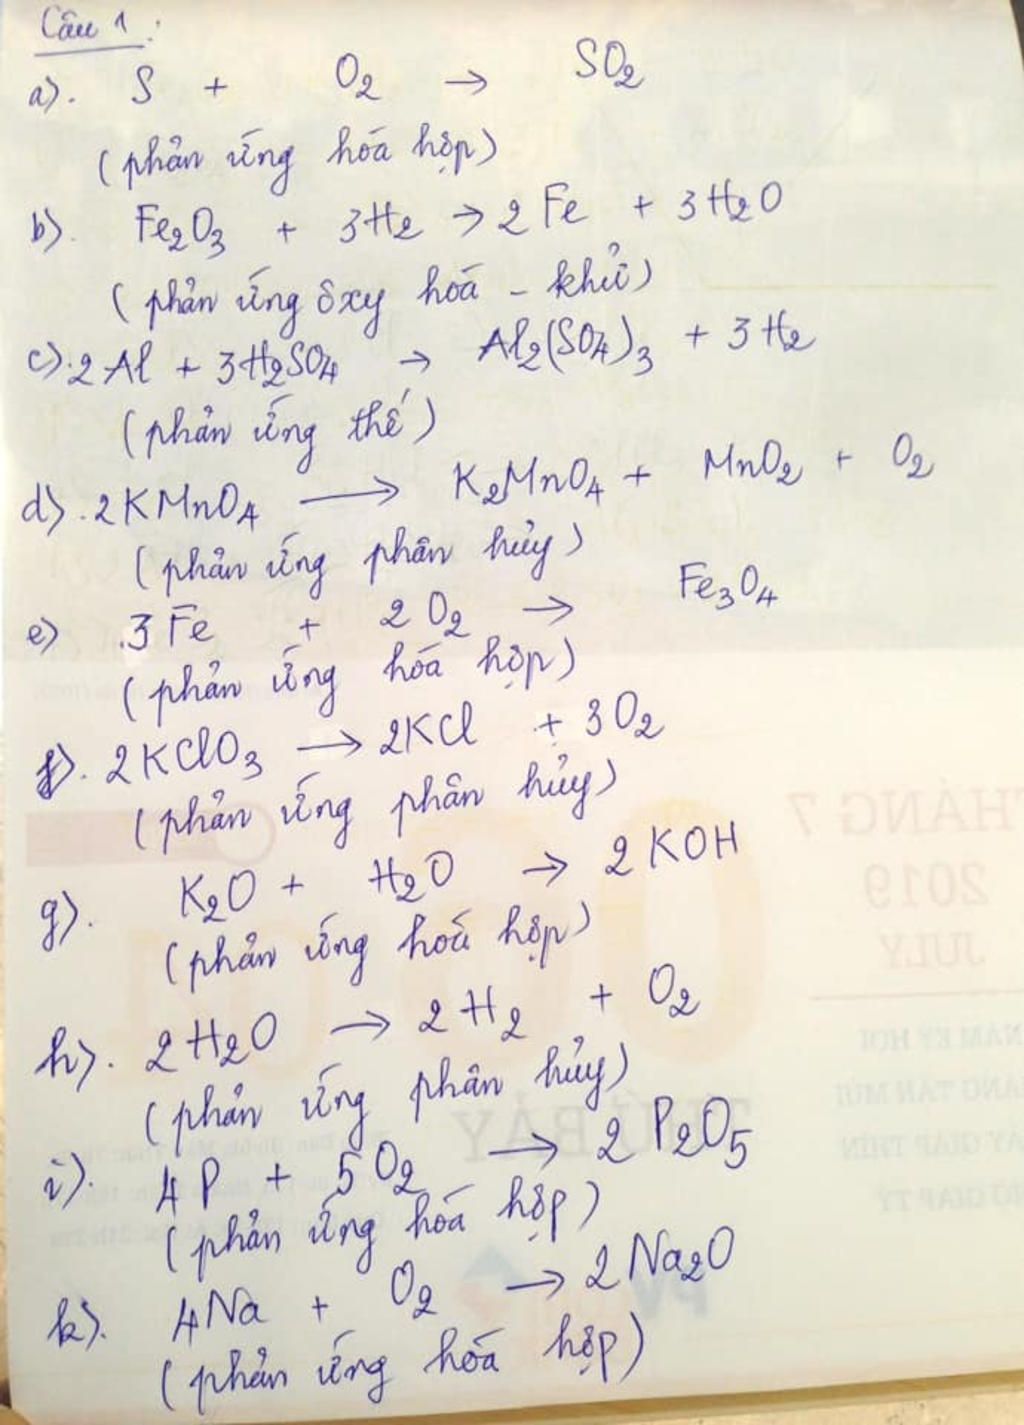 Câu 1:
a). S + O2 → SO2
(phản ứng hóa hợp)
b). Fe2O3 + 3H2 → 2Fe + 3H2O
(phản ứng ôxy hoá - khử)
c). 2Al + 3H2SO4 → Al2(SO4)3 + 3H2
(phản ứng thế)
d). 2KMnO4 → K2MnO4 + MnO2 + O2
(phản ứng phân hủy)
e) .3Fe + 2O2 → Fe3O4
(phản ứng hóa hợp)
f). 2KClO3 → 2KCl + 3O2
(phản ứng phân hủy)
g). K2O + H2O → 2KOH
(phản ứng hoá hợp)
h). 2H2O → 2H2 + O2
(phản ứng phân hủy)
i). 4P + 5O2 → 2P2O5
(phản ứng hóa hợp)
k). 4Na + O2 → 2Na2O
(phản ứng hóa hợp)
THÁNG 7
2019
JULY
THỨ BẢY